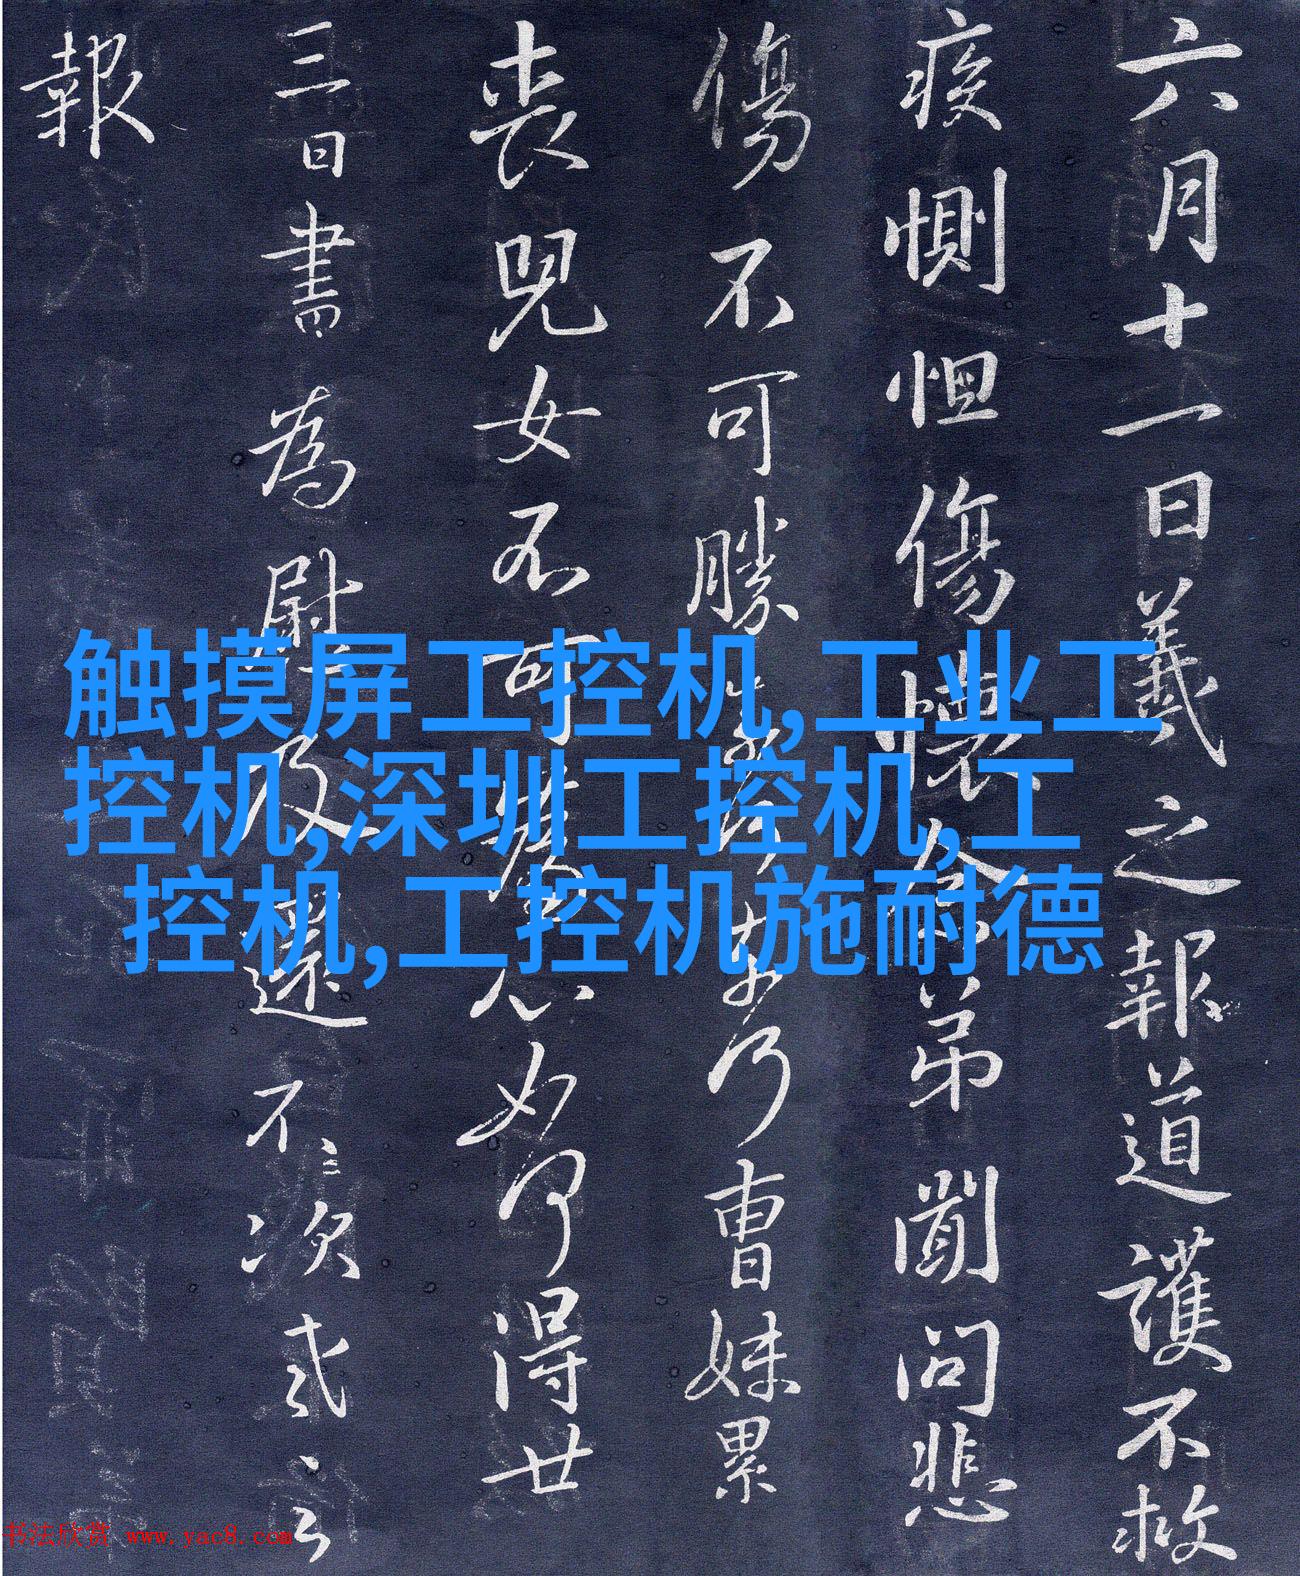 六月十一日羲之報道護不救
疾惻怛傷懷念弟聞問悲
傷不可勝奈何奈何曹妹累
喪兒女不可為心如何得廿
三日書為慰及還不次
報
触摸屏工控机,工业工
控机,深圳工控机,工
控机,工控机施耐德
书法欣赏 www.yac8.com